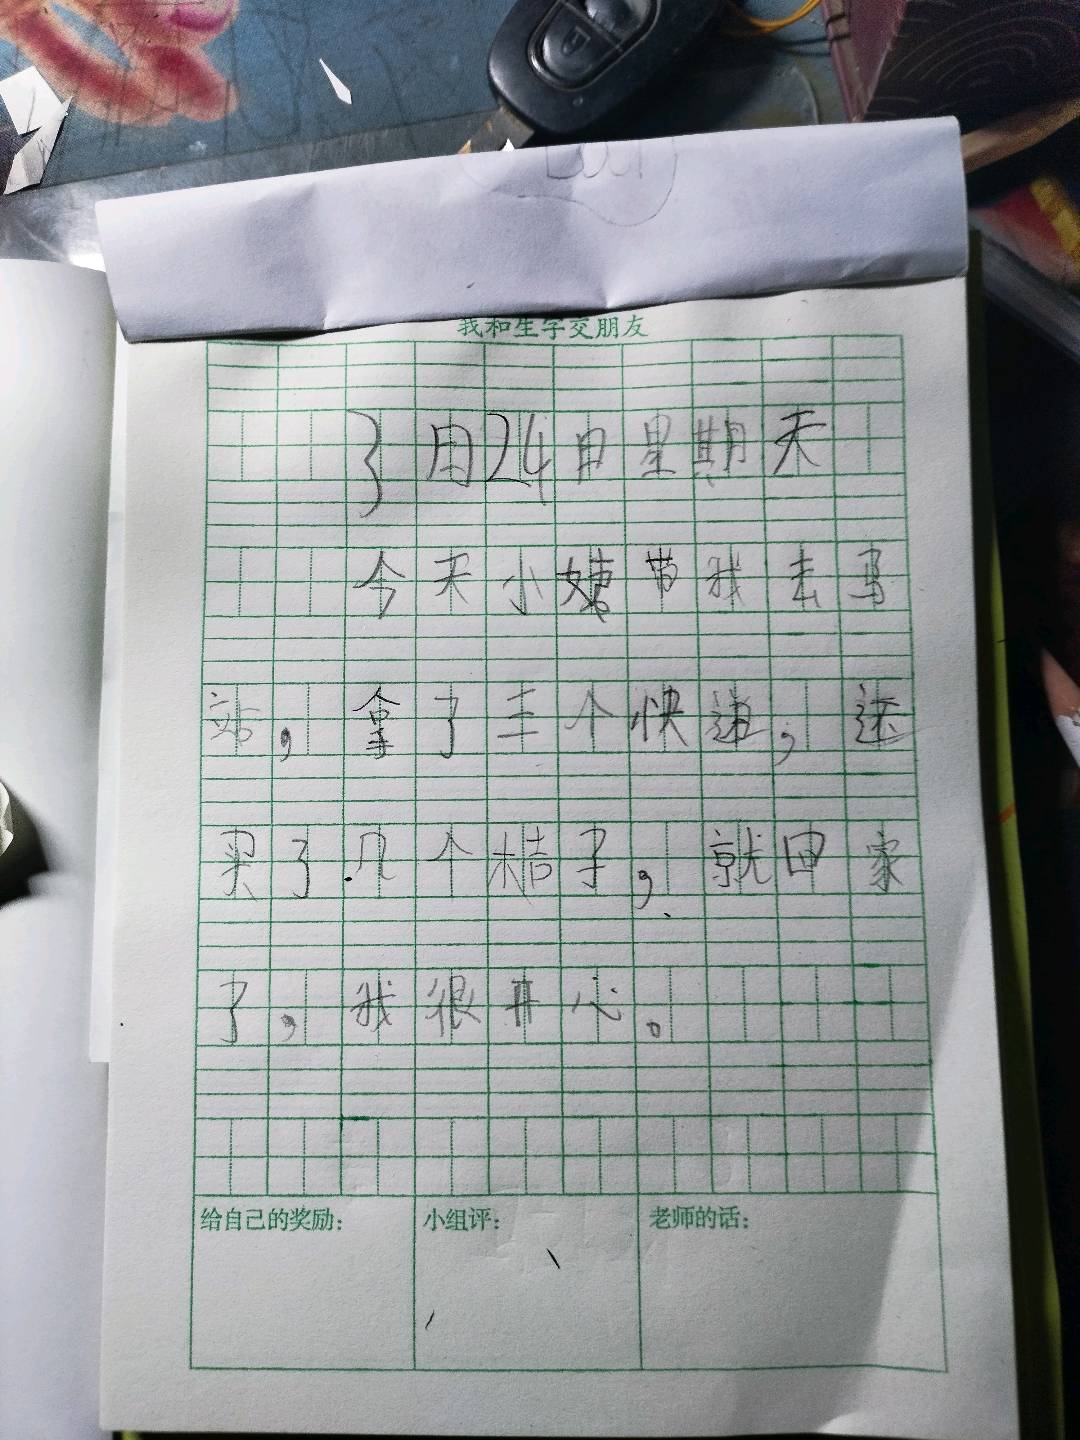 我和生字交朋友
3月24日星期天
今天小姨带我去马
站，拿了三个快递，还
买了几个桔子，就回家
了，我很开心。
给自己的奖励：
小组评：
老师的话：